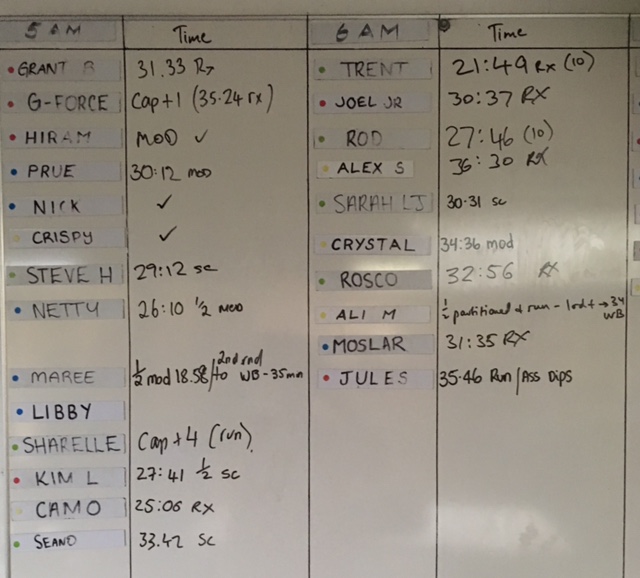 5 AM Time
GRANT B 31.33 Rx
G-FORCE Cap+1 (35.24 rx)
HIRAM MOD ✓
PRUE 30:12 MOD
NICK ✓
CRISPY ✓
STEVE H 29:12 sc
NETTY 26:10 ½ MOD
MAREE ½ mod 18.58/2nd rnd to WB-35mn
LIBBY
SHARELLE Cap+4 (run)
KIM L 27:41 ½ sc
CAMO 25:06 RX
SEANO 33.42 sc
6 AM Time
TRENT 21:49 RX (10)
JOEL JR 30:37 RX
ROD 27:46 (10)
ALEX S 36:30 RX
SARAH LJ 30.31 sc
CRYSTAL 34:36 mod
ROSCO 32:56 RX
ALI M ½ partitioned & run - → 34 WB
MOSLAR 31:35 RX
JULES 35.46 Run/Ass Dips